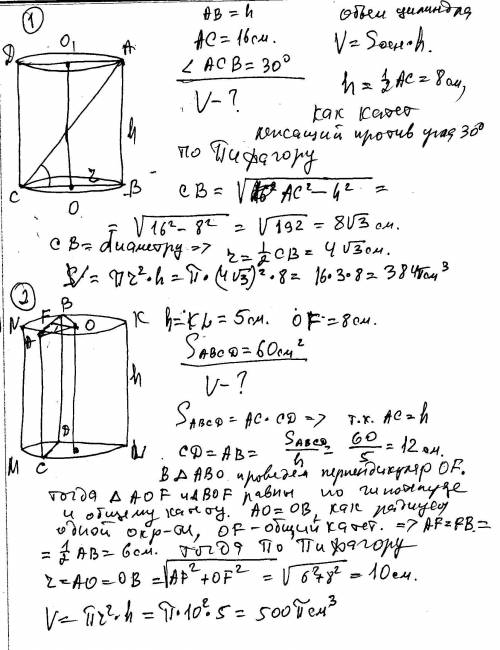 1
D O₁ A
C O r B
h
AB = h
AC = 16см.
∠ ACB = 30°
V - ?
Объем цилиндра
V = Sосн·h.
h = ½ AC = 8см,
как катет
лежащий против угла 30°
по Пифагору
CB = √AC² - h² =
= √16² - 8² = √192 = 8√3 см.
CB = диаметру => r = ½ CB = 4√3 см.
V = πr²·h = π·(4√3)²·8 = 16·3·8 = 384π см³
2
N F B O K
A
h
M C D L
h = KL = 5см. OF = 8см.
SABCD = 60см²
V - ?
SABCD = AC·CD => т.к. AC = h
CD = AB = SABCD/h = 60/5 = 12 см.
В △ ABO проведем перпендикуляр OF.
тогда △ AOF и △BOF равны по гипотенузе
и общему катету. AO = OB, как радиусы
одной окр-ти, OF - общий катет. => AF = FB =
= ½ AB = 6см. тогда по Пифагору
r = AO = OB = √AF² + OF² = √6²+8² = 10см.
V = πr²·h = π·10²·5 = 500π см³